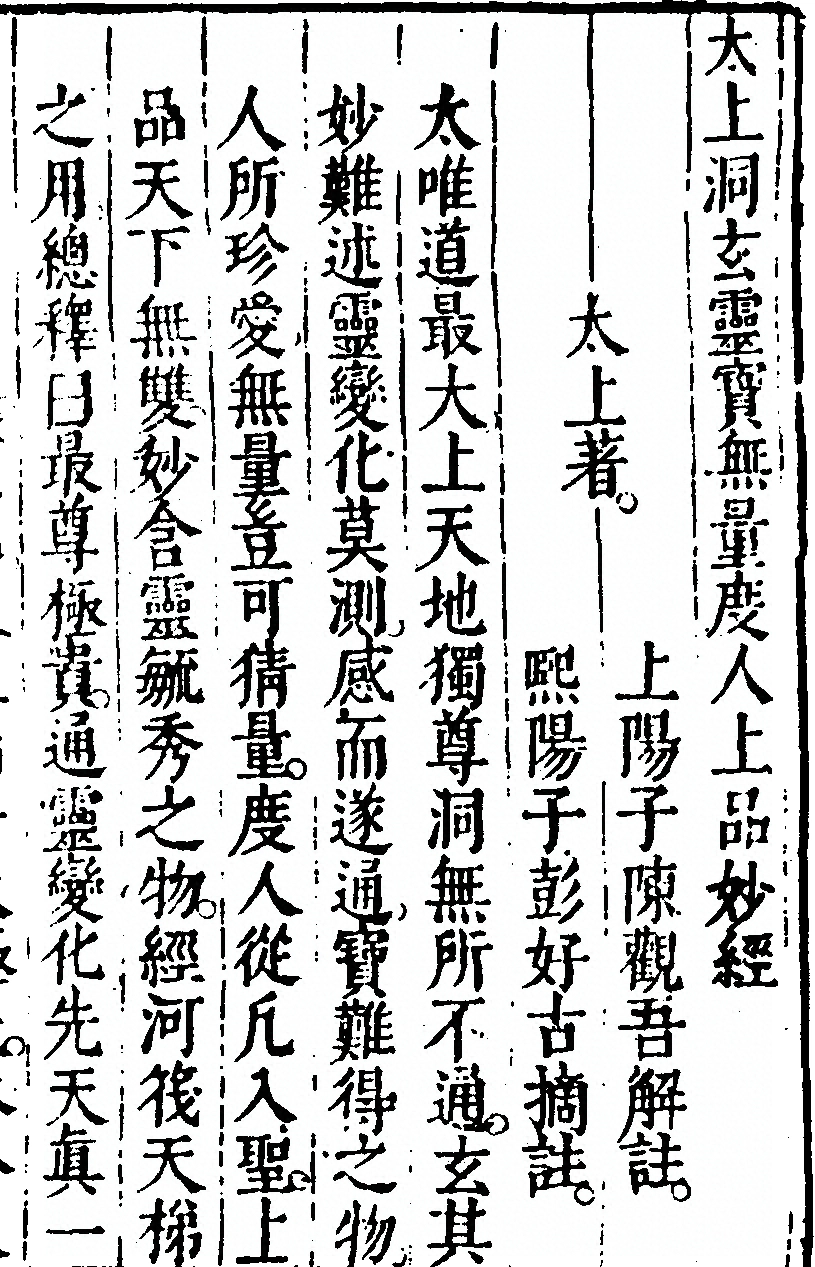 太上洞玄靈寶無量度人上品妙經
上陽子陳觀吾解註。
太上著。
熙陽子彭好古摘註。
太唯道最大上天地獨尊洞無所不通。玄其
妙難述靈變化莫測。感而遂通。寶難得之物
人所珍愛無量豈可猜量。度人從凡入聖。上
品天下無雙妙含靈毓秀之物。經河筏天梯
之用總釋曰最尊極貴。通靈變化先天眞一